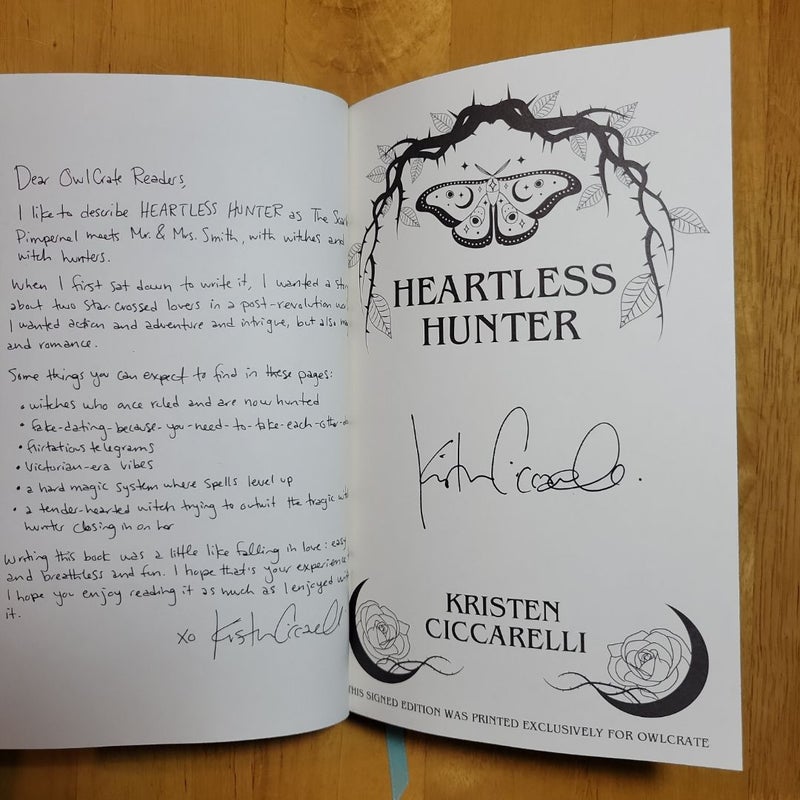 Dear OwlCrate Readers,
I like to describe HEARTLESS HUNTER as The
Pimpernel meets Mr. & Mrs. Smith, with witches and
witch hunters.
When I first sat down to write it, I wanted a
about two star-crossed lovers in a post-revolution
I wanted action and adventure and intrigue, but also
and romance.
Some things you can expect to find in these pages:
• witches who once ruled and are now hunted
• fake-dating-because-you-need-to-take-each-other-
• flirtatious telegrams
• Victorian-era vibes
• a hard magic system where spells level up
• a tender-hearted witch trying to outwit the tragic
hunter closing in on her
Writing this book was a little like falling in love: easy
and breathless and fun. I hope that's your experience
I hope you enjoy reading it as much as I enjoyed
it.
xo Kristen Ciccarelli
HEARTLESS
HUNTER
Kristen Ciccarelli
KRISTEN
CICCARELLI
THIS SIGNED EDITION WAS PRINTED EXCLUSIVELY FOR OWLCRATE